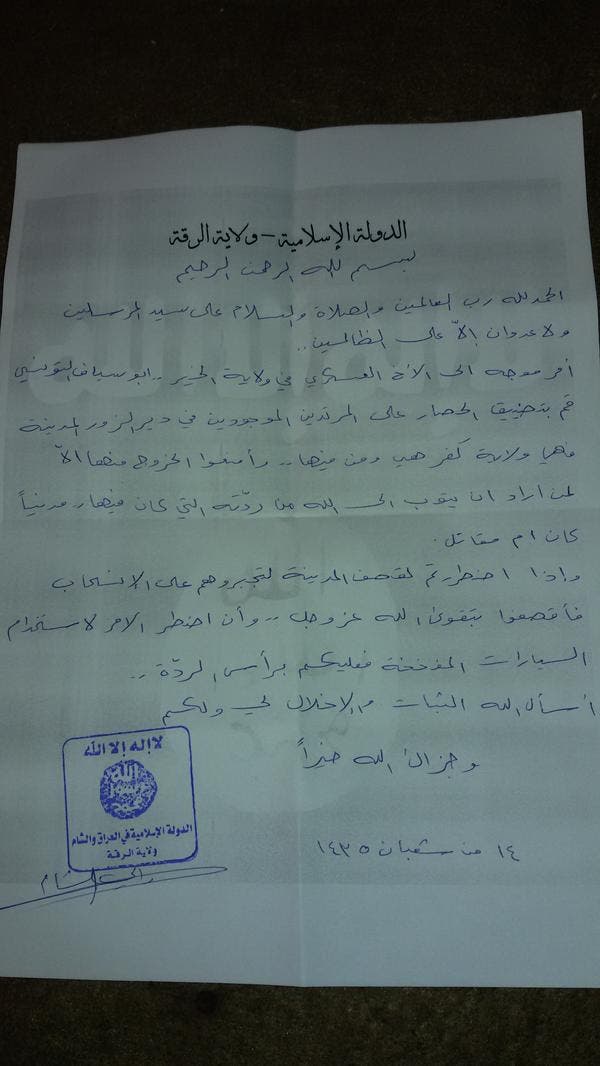 الدولة الإسلامية – ولاية الرقة
بسم الله الرحمن الرحيم
الحمد لله رب العالمين والصلاة والسلام على سيد المرسلين
ولا عدوان الاّ على الظالمين..
أمر موجه الى الأخ العسكري في ولاية الخير.. ابو سياف التونسي
قم بتضييق الحصار على المرتدين الموجودين في دير الزور المدينة
فهي ولاية كفر هي ومن فيها.. وأمنعوا الخروج منها الاّ
لمن اراد ان يتوب الى الله من ردّته التي كان فيها، مدنياً
كان ام مقاتل.
واذا اضطررتم لقصف المدينة لتجبروهم على الانسحاب
فأقصفوا بتقوى الله عز وجل.. وأن اضطر الامر لاستخدام
السيارات المفخخة فعليكم برأس الردّة..
أسأل الله الثبات والإخلال لي ولكم
وجزاك الله خيراً
١٤ من شعبان ١٤٣٥
لا إله إلا الله
الله
رسول
محمد
الدولة الإسلامية في العراق والشام
ولاية الرقة